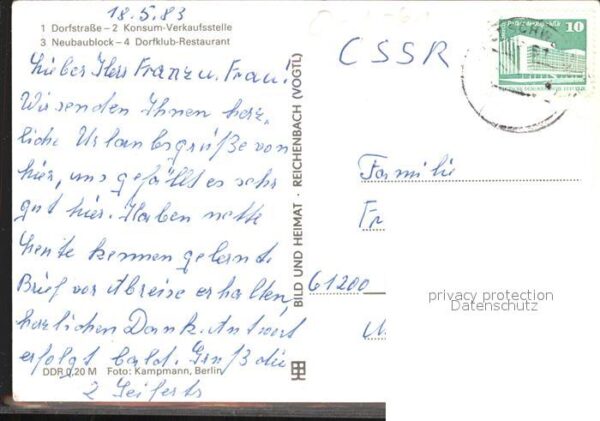 18.5.83
1 Dorfstraße – 2 Konsum-Verkaufsstelle
3 Neubaublock – 4 Dorfklub-Restaurant
Lieber Herr Franz u. Frau!
Wir senden Ihnen herz-
liche Urlaubsgrüße von
hier, uns gefällt es sehr
gut hier. Haben nette
Leute kennen gelernt.
Brief vor Abreise erhalten,
herzlichen Dank. Antwort
erfolgt bald. Gruß die
2 Seiferts
DDR 0,20 M Foto: Kampmann, Berlin
BILD UND HEIMAT · REICHENBACH (VOGTL)
CSSR
10
Familie
Fr
61200
privacy protection
Datenschutz